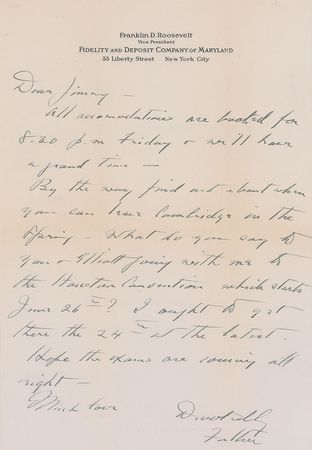 Franklin D. Roosevelt
Vice President
Fidelity and Deposit Company of Maryland
55 Liberty Street New York City
Dear Jimmy –
All accomodations are booked for
8-20 p.m Friday & we'll have
a grand time –
By the way find out about when
you can leave Cambridge in the
Spring – What do you say to
you & Elliott going with me to
the Houston Convention which starts
June 26th? I ought to get
there the 24th at the latest.
Hope the exams are coming all
right –
Much love
Devotedly
Father